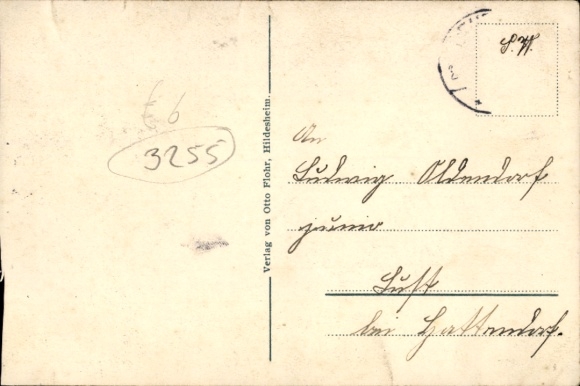 S. H.
6
3255
Verlag von Otto Flohr, Hildesheim.
An
Ludwig Oldendorf
junior
Lust
bei Hattendorf.